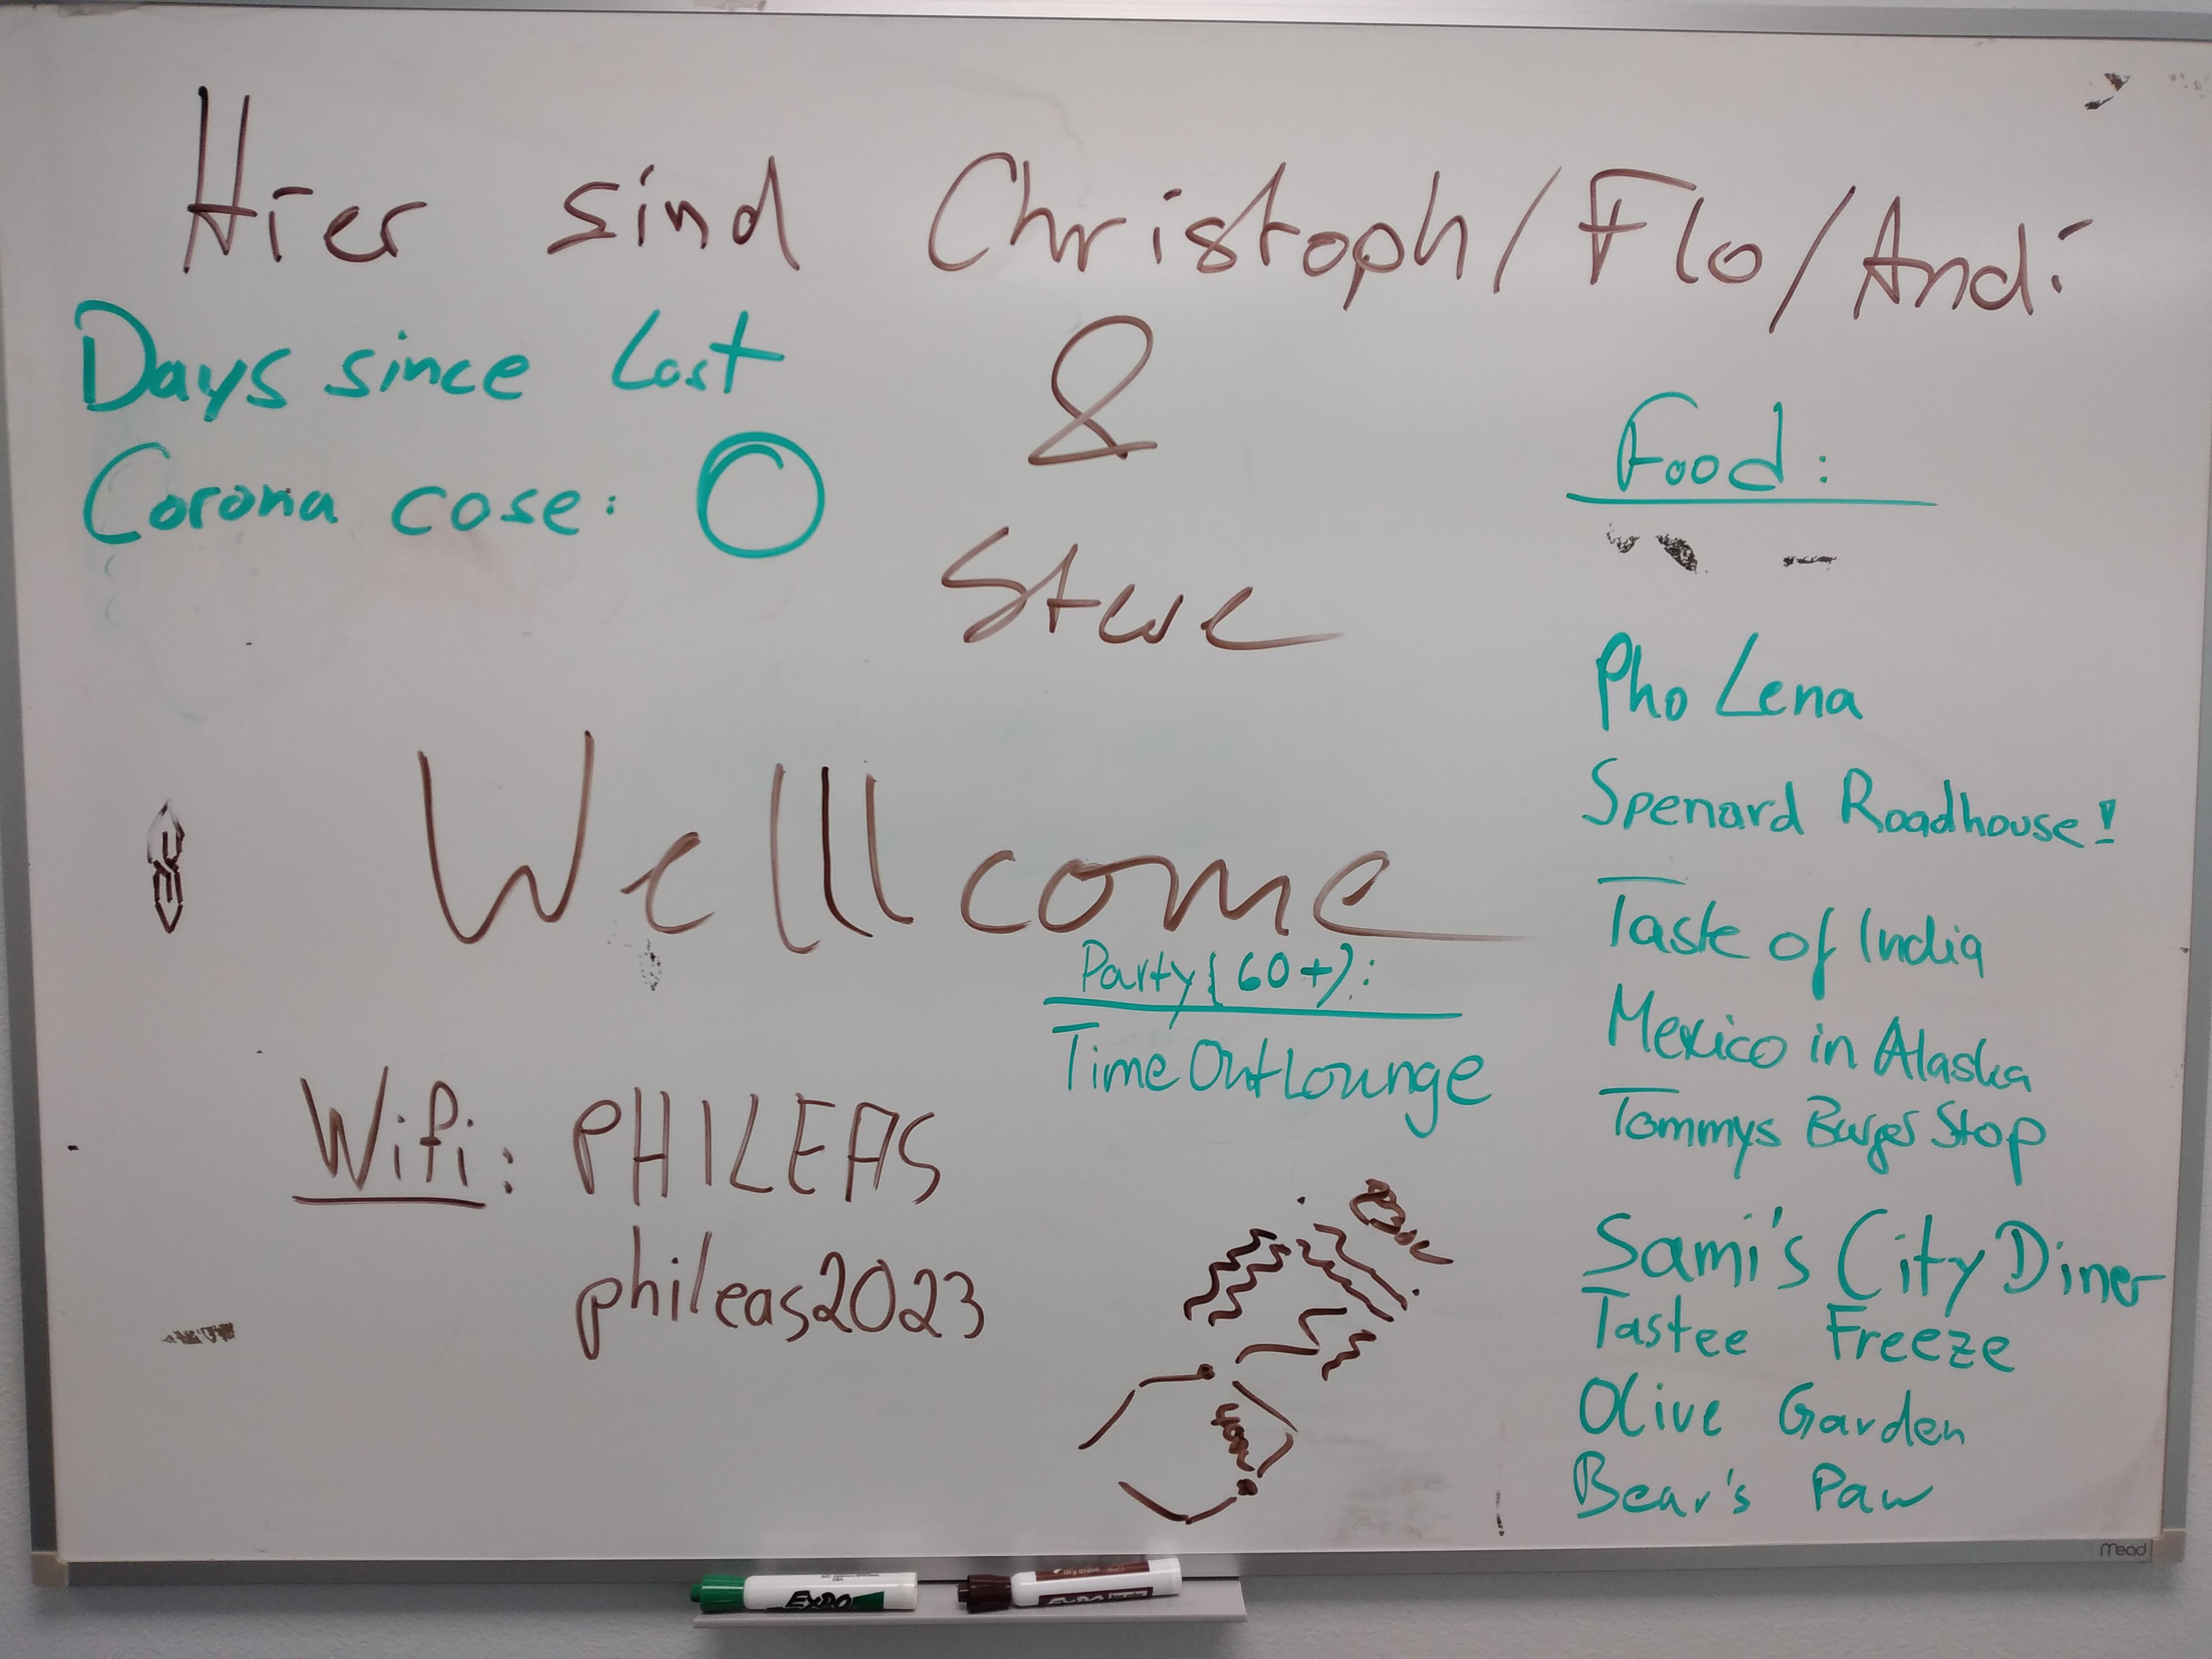 Hier sind Christoph/Flo/Andi
&
Steve
Days since last
Corona case: 0
Welllcome
Wifi: PHILEAS
phileas2023
Party (60+):
Time Out Lounge
Food:
Pho Lena
Spenard Roadhouse!
Taste of India
Mexico in Alaska
Tommys Burger Stop
Sami's City Diner
Tastee Freeze
Olive Garden
Bear's Paw
Mead
EXPO